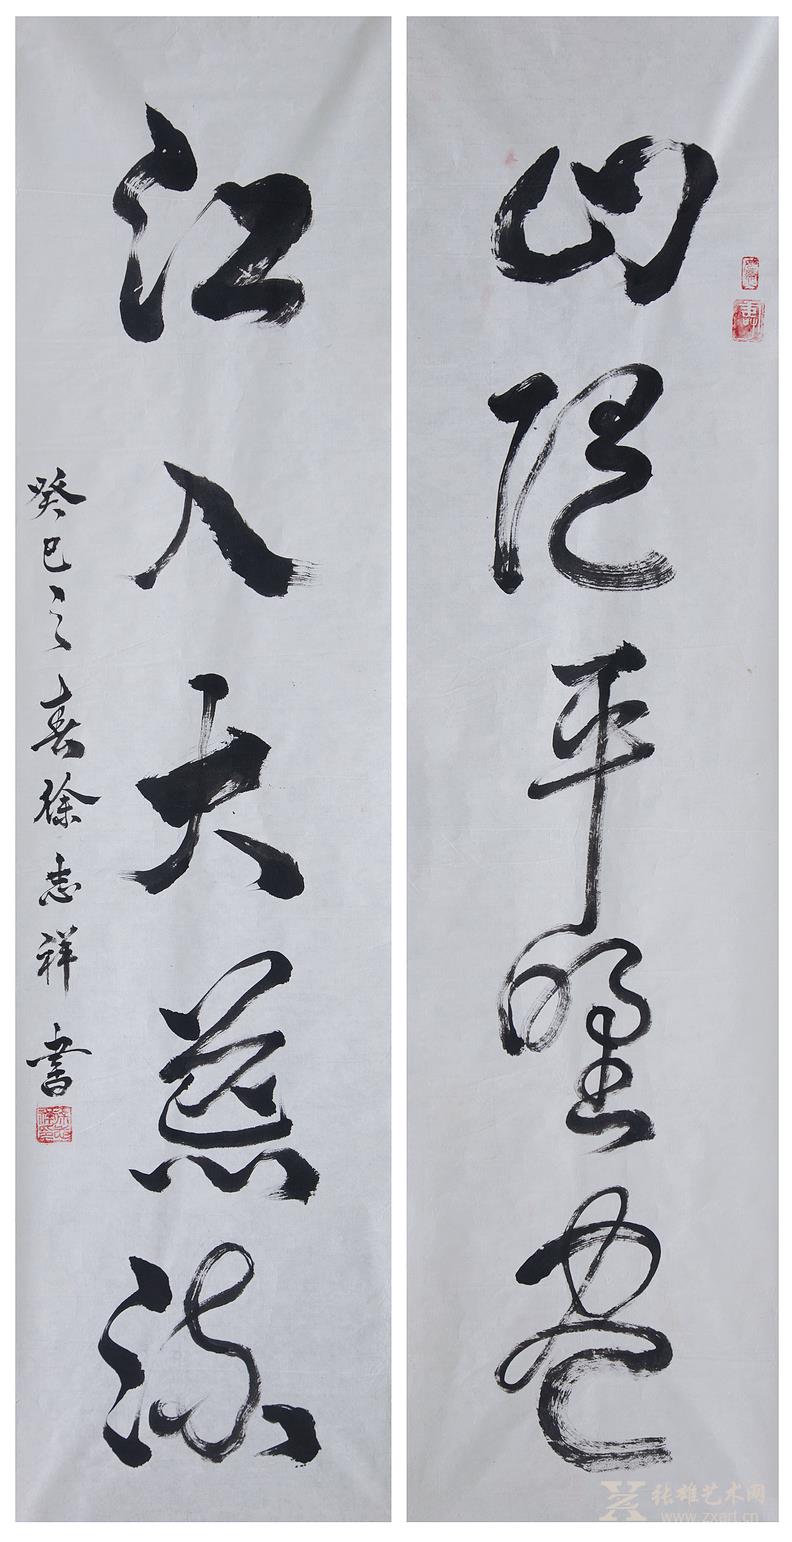 山随平野尽
江入大荒流
癸巳之春徐志祥書
张雄艺术网
www.zxart.cn